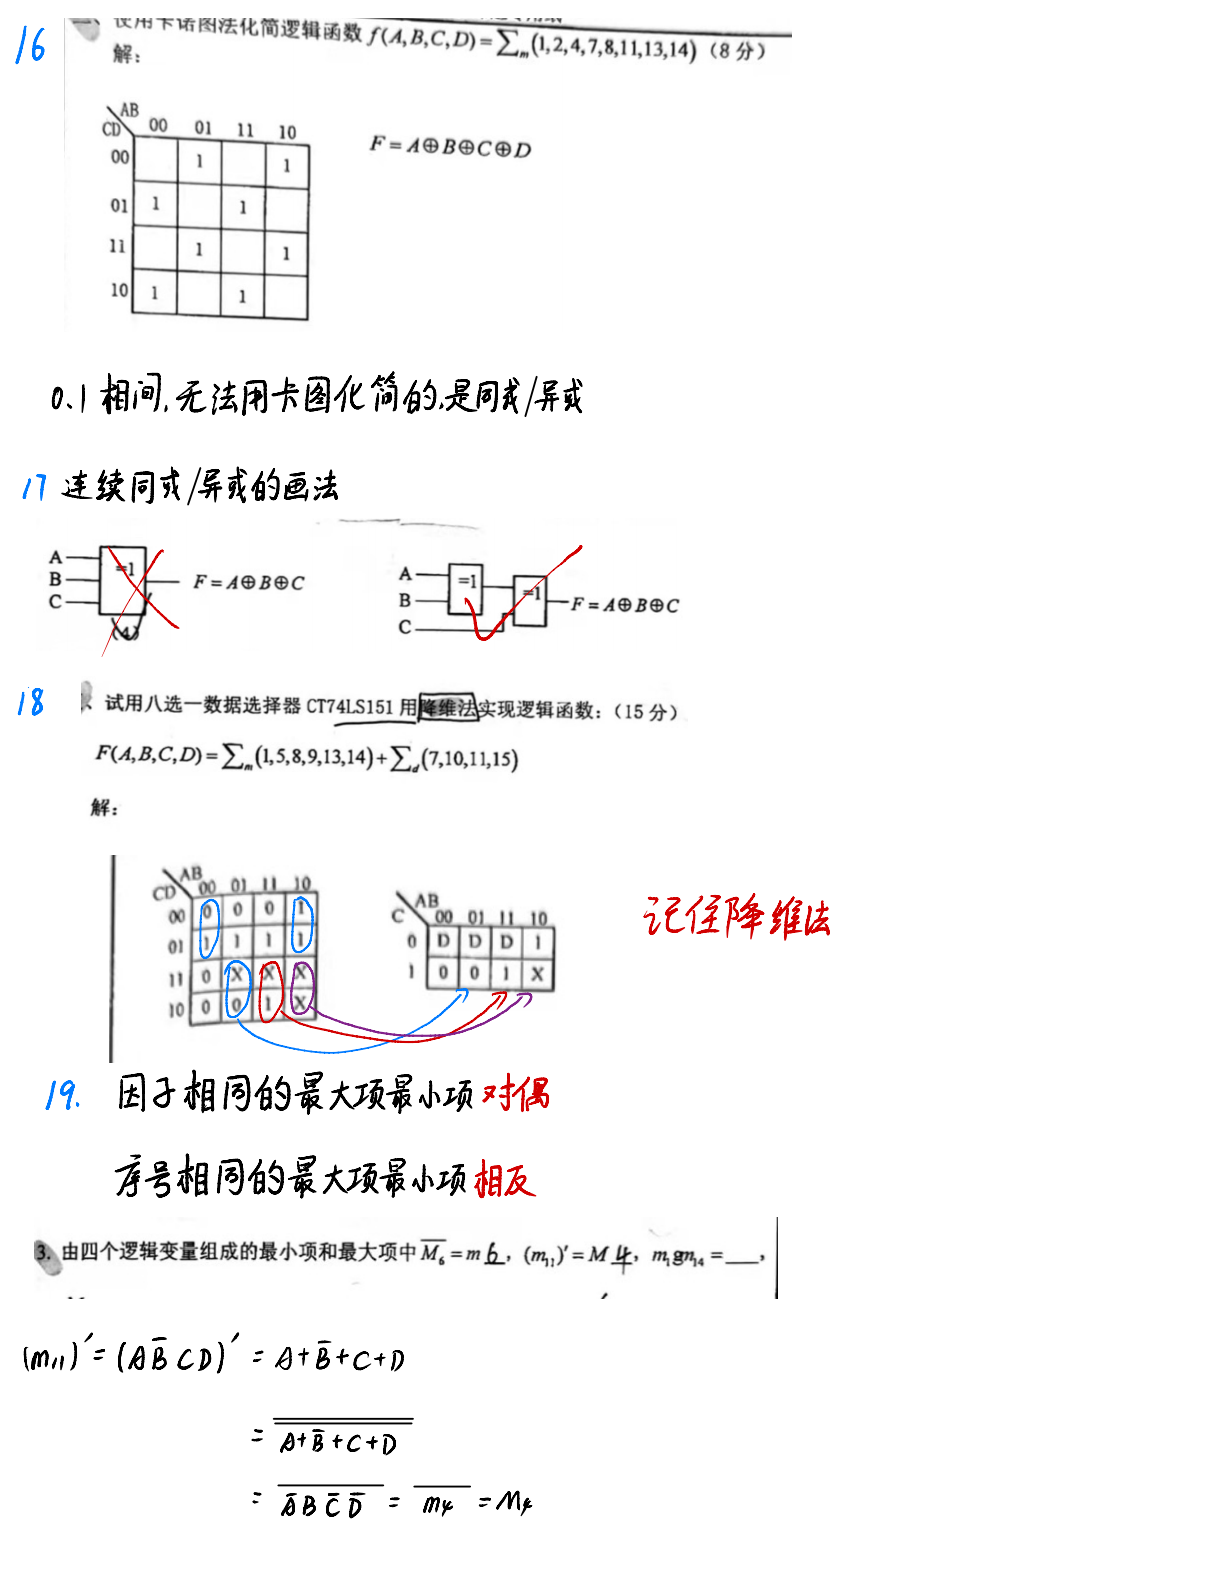 16
使用卡诺图法化简逻辑函数 f(A,B,C,D)=∑m(1,2,4,7,8,11,13,14)（8分）
解：
AB
CD 00 01 11 10
00 1 1
01 1 1
11 1 1
10 1 1
F=A⊕B⊕C⊕D
0.1相间,无法用卡图化简的,是同或/异或
17 连续同或/异或的画法
A
B =1 F=A⊕B⊕C
C
(4)
A =1
B =1 F=A⊕B⊕C
C
18 试用八选一数据选择器 CT74LS151 用降维法实现逻辑函数：（15 分）
F(A,B,C,D)=∑m(1,5,8,9,13,14)+∑d(7,10,11,15)
解：
AB
CD 00 01 11 10
00 0 0 0 1
01 1 1 1 1
11 0 X X X
10 0 0 1 X
AB
C 00 01 11 10
0 D D D 1
1 0 0 1 X
记住降维法
19. 因子相同的最大项最小项对偶
序号相同的最大项最小项相反
3. 由四个逻辑变量组成的最小项和最大项中 M̅₆=m 6，(m₁₁)′=M 4，m₁gm₁₄=___，
(m₁₁)′=(AB̅CD)′=A+B̅+C+D
= \overline{\overline{A+B̅+C+D}}
= \overline{A̅BC̅D̅} = \overline{m₄} = M₄